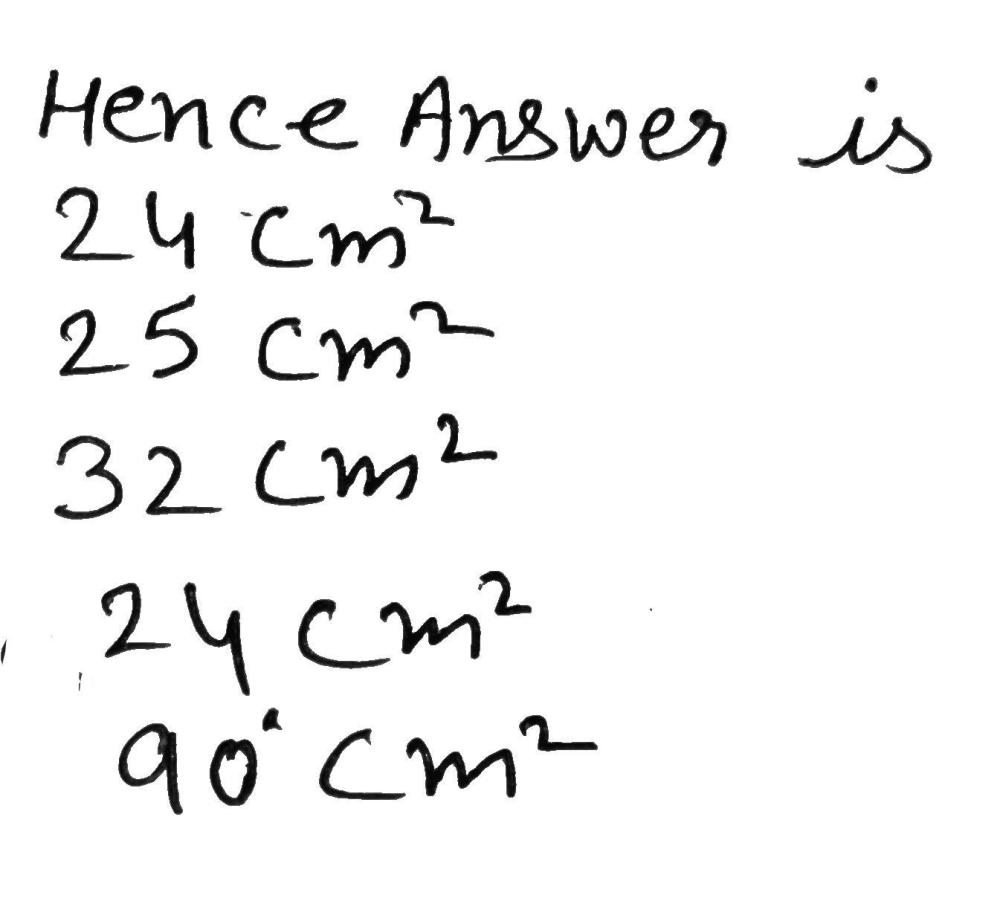 Hence Answer is
24 cm²
25 cm²
32 cm²
24 cm²
90 cm²